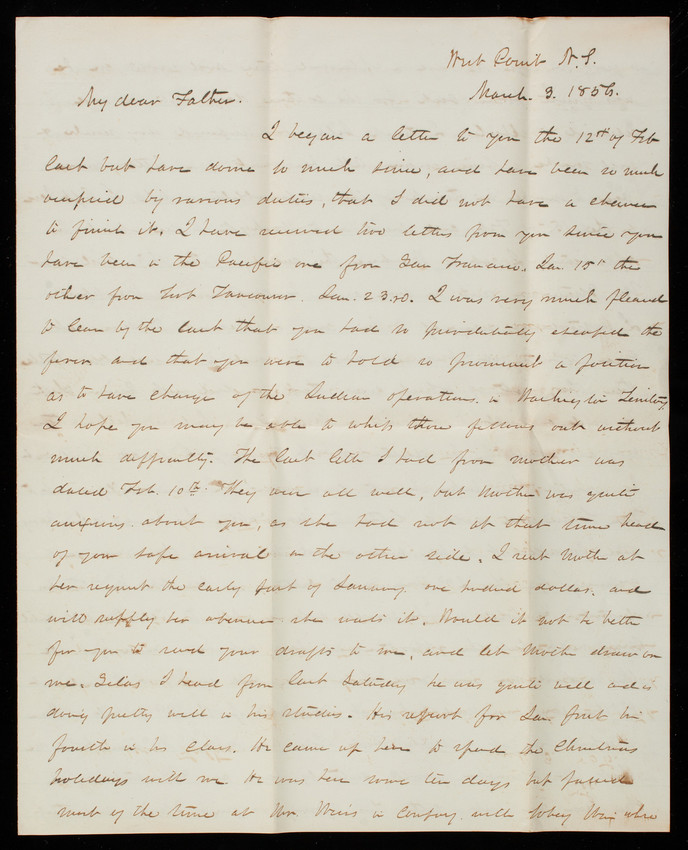 West Point N.Y.
March 3. 1856.
My dear Father.
I began a letter to you the 12th of Feb
last but have done so much since, and have been so much
occupied by various duties, that I did not have a chance
to finish it. I have received two letters from you since you
have been in the Pacific one from San Francisco. Jan. 15th the
other from Fort Vancouver. Jan. 23rd. I was very much pleased
to learn by the last that you had so providentially escaped the
fever and that you were to hold so prominent a position
as to have charge of the Indian operations in Washington Territory
I hope you may be able to whip those fellows out without
much difficulty. The last letter I had from mother was
dated Feb. 10th. They were all well, but Mother was quite
anxious about you, as she had not at that time heard
of your safe arrival on the other side. I sent Mother at
her request the early part of January one hundred dollars. and
will supply her whenever she wants it. Would it not be better
for you to send your drafts to me, and let Mother draw on
me. Silas I heard from last Saturday he was quite well and is
doing pretty well in his studies. His report for Jan. put him
fourth in his class. He came up here to spend the Christmas
holidays with me He was here some ten days but passed
most of the time at Mr. Weir's in company with Weir where